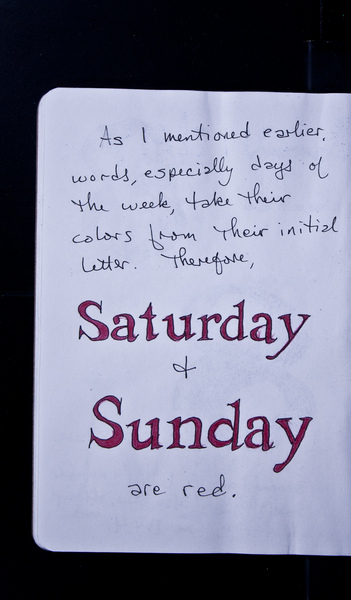 As I mentioned earlier,
words, especially days of
the week, take their
colors from their initial
letter. Therefore,
Saturday
&
Sunday
are red.